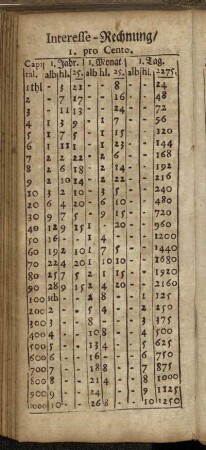 Interesse-Rechnung/
1. pro Cento.
Capi 1. Jahr. 1. Monat. 1. Tag.
tal. alb hl. 25. alb hl. 25. alb hl. 2275.
1 thl - 3 21 - - 8 - - 24
2 - 7 17 - - 16 - - 48
3 - 11 13 - - 24 - - 72
4 1 3 9 - 1 7 - - 96
5 1 7 5 - 1 15 - - 120
6 1 11 1 - 1 23 - - 144
7 2 2 22 - 2 6 - - 168
8 2 6 18 - 2 14 - - 192
9 2 10 14 - 2 22 - - 216
10 3 2 10 - 3 5 - - 240
20 6 4 20 - 6 10 - - 480
30 9 7 5 - 9 15 - - 720
40 12 9 15 1 - 20 - - 960
50 16 - - 1 4 - - - 1200
60 19 2 10 1 7 5 - - 1440
70 22 4 20 1 10 10 - - 1680
80 25 7 5 2 1 15 - - 1920
90 28 9 15 2 4 20 - - 2160
100 1th - - 2 8 - - 1 125
200 2 - - 5 4 - - 2 250
300 3 - - 8 - - - 3 375
400 4 - - 10 8 - - 4 500
500 5 - - 13 4 - - 5 625
600 6 - - 16 - - - 6 750
700 7 - - 18 8 - - 7 875
800 8 - - 21 4 - - 8 1000
900 9 - - 24 - - - 9 1125
1000 10 - - 26 8 - - 10 1250